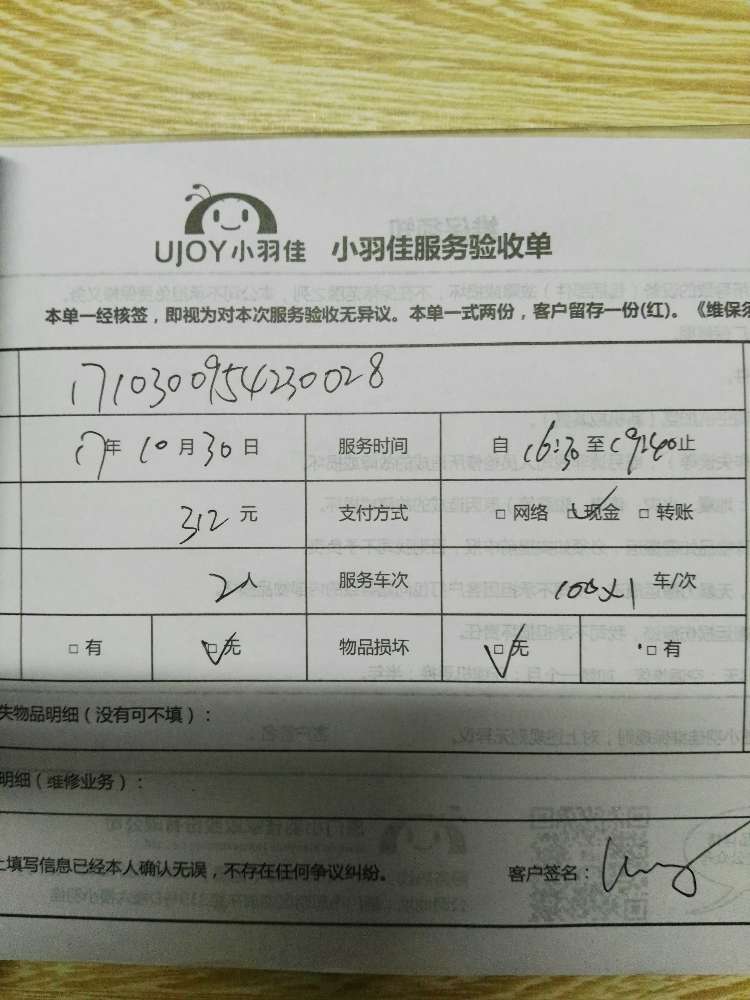 UJOY小羽佳 小羽佳服务验收单
本单一经核签，即视为对本次服务验收无异议。本单一式两份，客户留存一份(红)。《维保须
1710300954230028
17年 10月30日 服务时间 自 16:30 至 19:40止
312 元 支付方式 □ 网络 □ 现金 □ 转账
2人 服务车次 100×1 车/次
□ 有 □ 无 物品损坏 □ 无 □ 有
失物品明细（没有可不填）：
明细（维修业务）：
上填写信息已经本人确认无误，不存在任何争议纠纷。 客户签名：